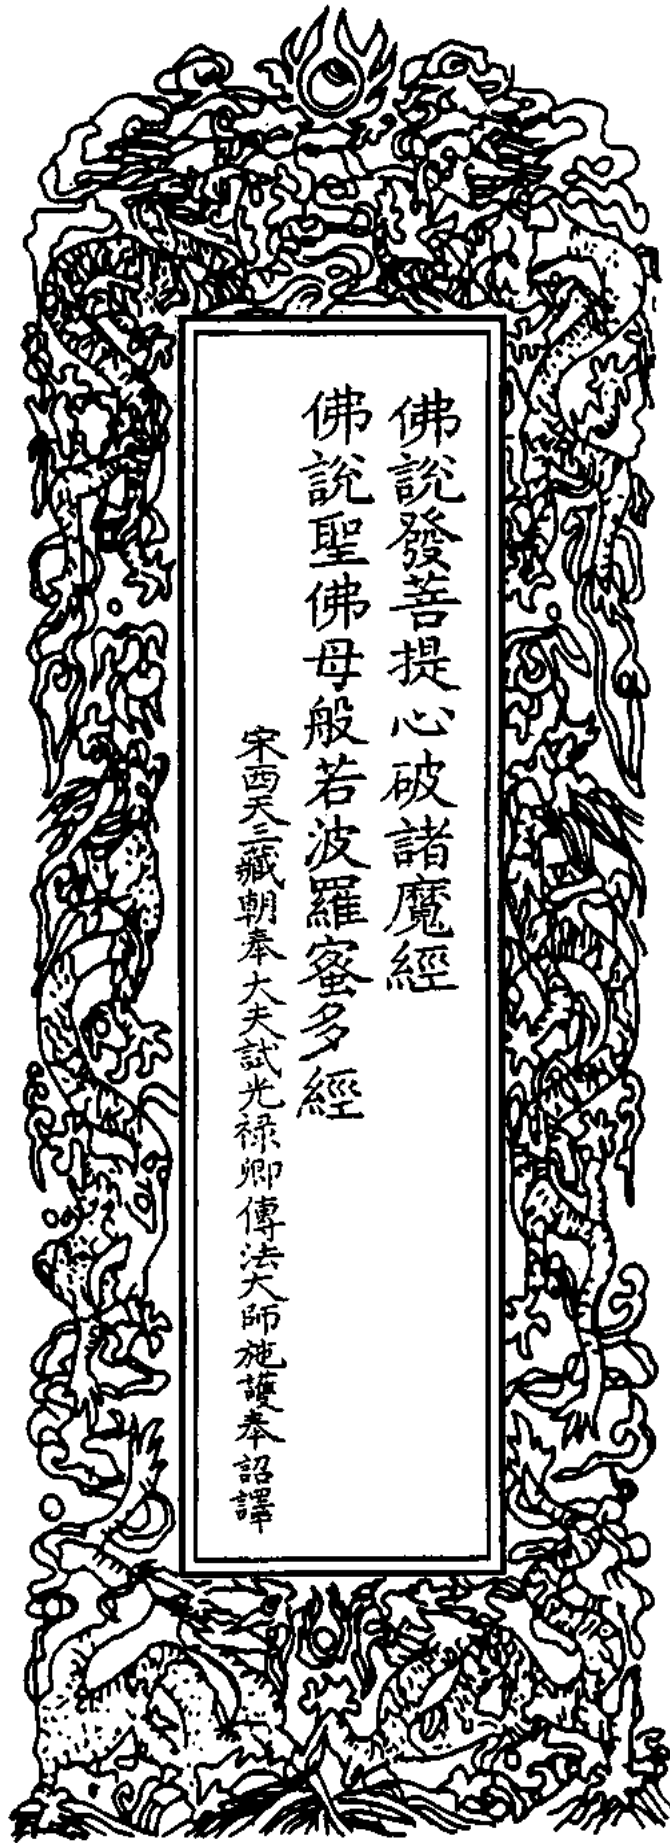 佛說發菩提心破諸魔經
佛說聖佛母般若波羅蜜多經
宋西天三藏朝奉大夫試光祿卿傳法大師施護奉詔譯